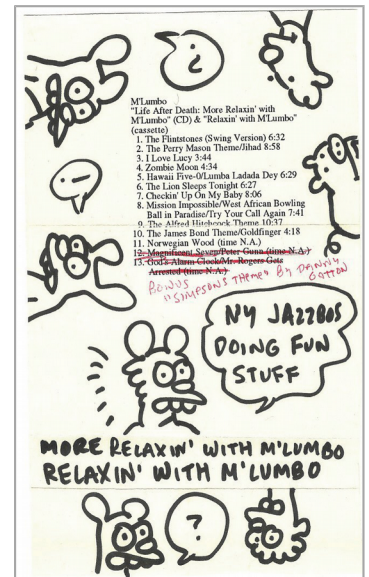 M'Lumbo
"Life After Death: More Relaxin' with
M'Lumbo" (CD) & "Relaxin' with M'Lumbo"
(cassette)
1. The Flintstones (Swing Version) 6:32
2. The Perry Mason Theme/Jihad 8:58
3. I Love Lucy 3:44
4. Zombie Moon 4:34
5. Hawaii Five-0/Lumba Ladada Dey 6:29
6. The Lion Sleeps Tonight 6:27
7. Checkin' Up On My Baby 8:06
8. Mission Impossible/West African Bowling
Ball in Paradise/Try Your Call Again 7:41
9. The Alfred Hitchcock Theme 10:37
10. The James Bond Theme/Goldfinger 4:18
11. Norwegian Wood (time N.A.)
12. Magnificent Seven/Peter Gunn (time N.A.)
13. God's Alarm Clock/Mr. Rogers Gets
Arrested (time N.A.)
BONUS
"SIMPSONS THEME" BY DANNY
GATTON
i
!
NY JAZZBOS
DOING FUN
STUFF
MORE RELAXIN' WITH M'LUMBO
RELAXIN' WITH M'LUMBO
?